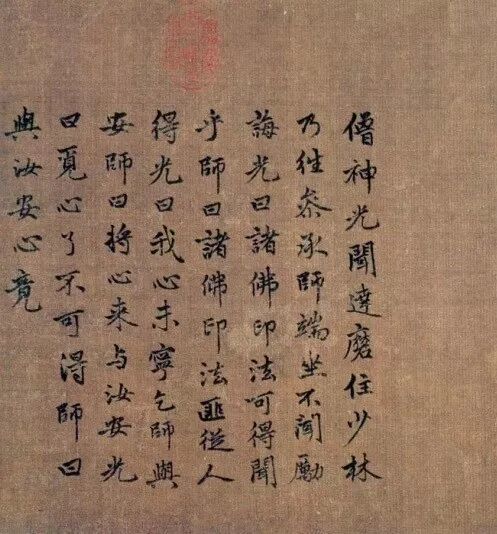 僧神光聞達磨住少林
乃往參承師端坐不聞勵
誨光曰諸佛印法可得聞
乎師曰諸佛印法匪從人
得光曰我心未寧乞師與
安師曰將心來与汝安光
曰覓心了不可得師曰
與汝安心竟